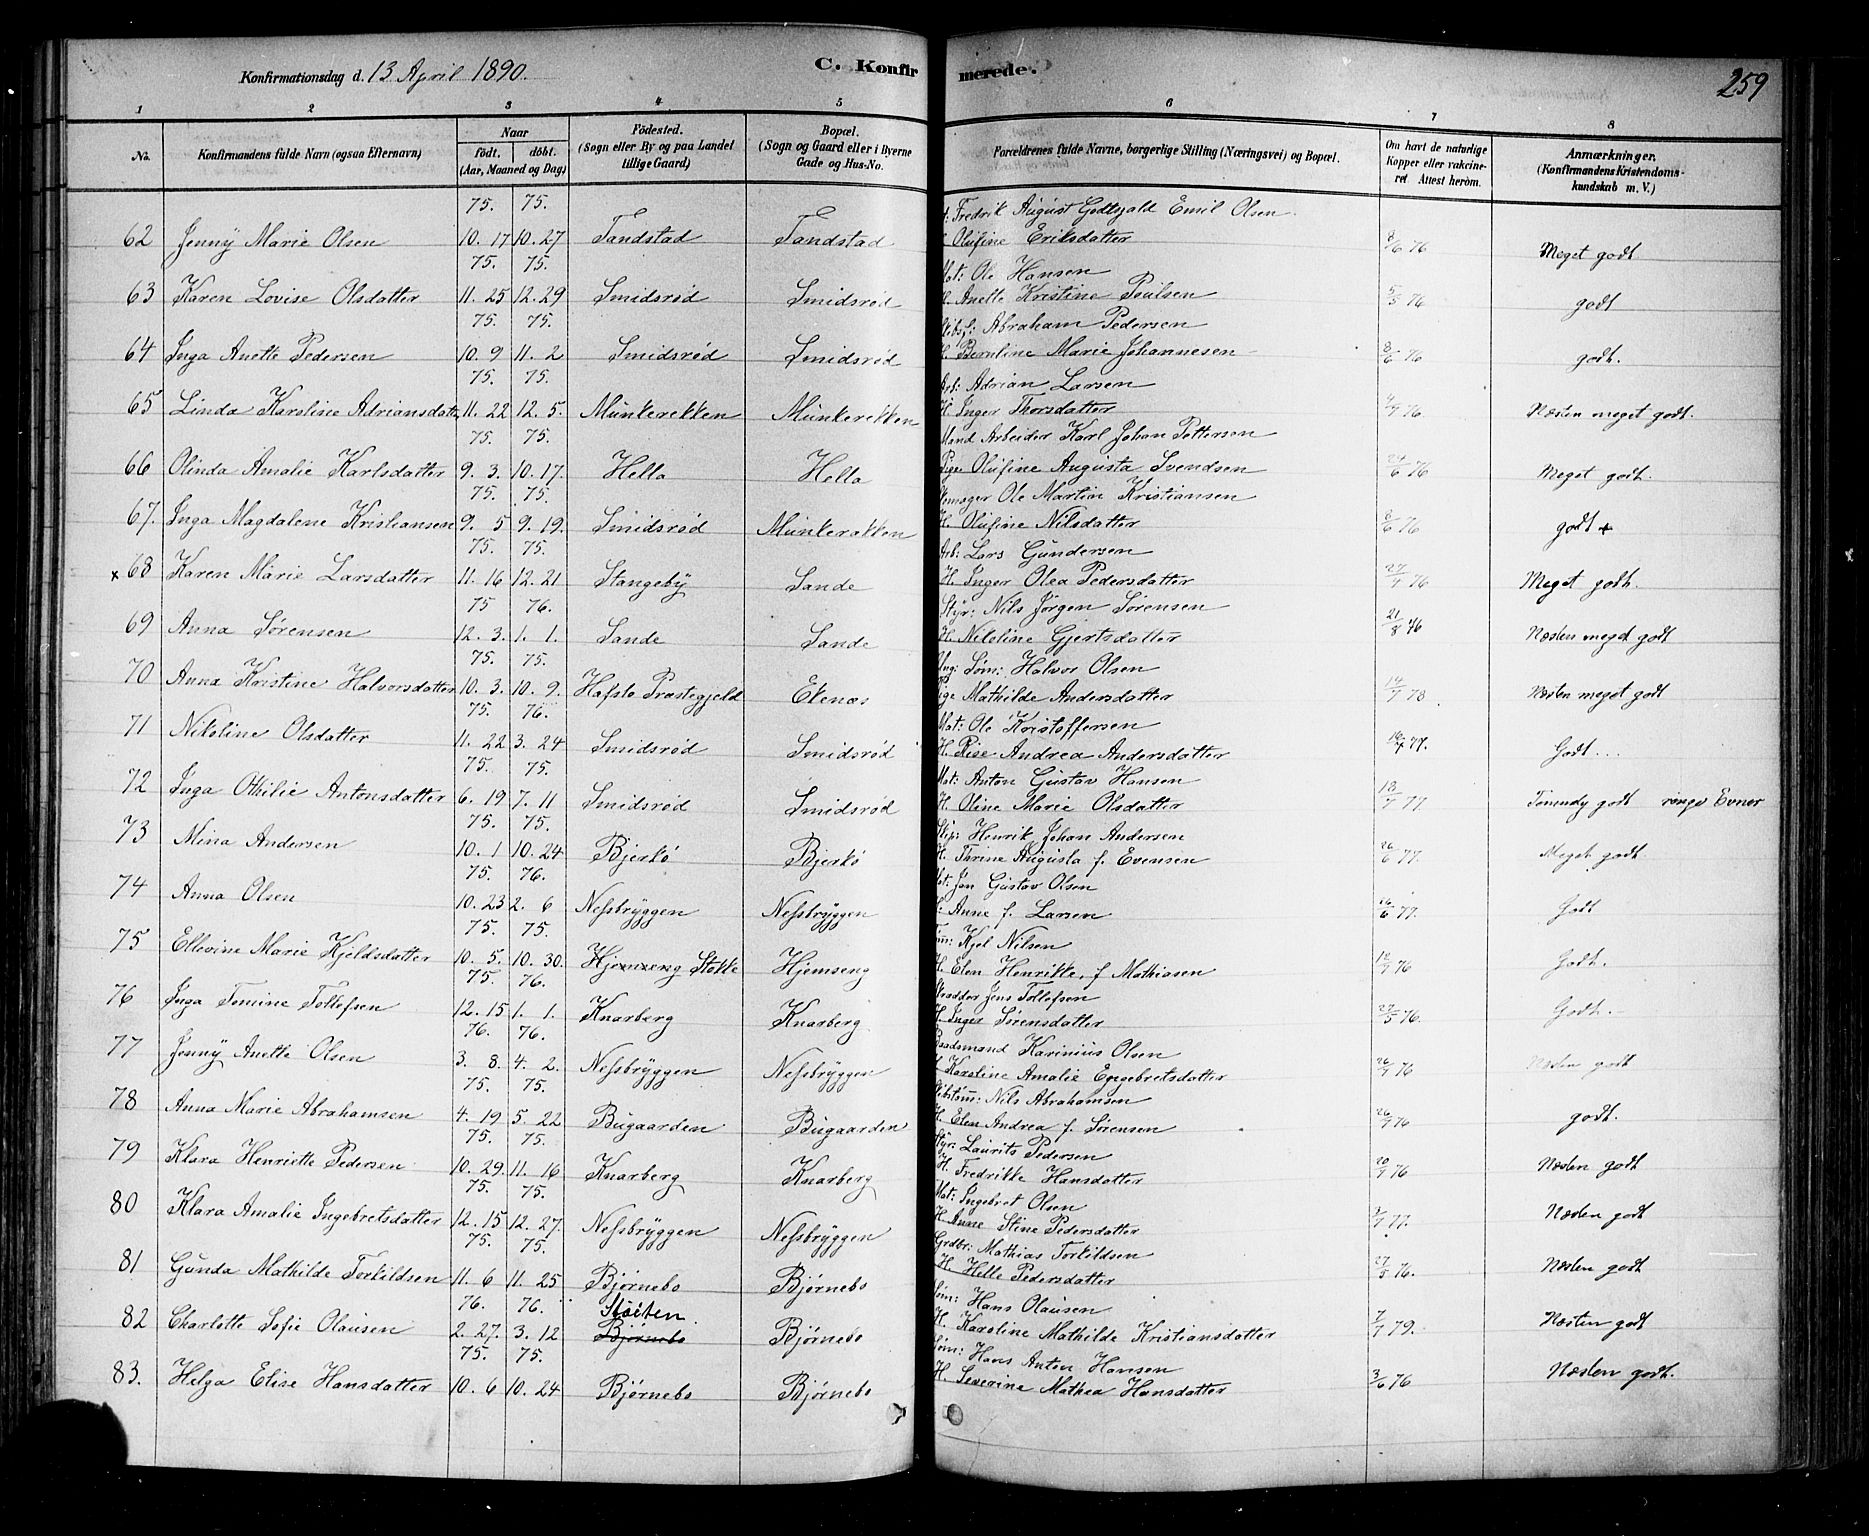 Konfirmationsdag d. 13 April 1890.
C. Konfirmerede.
259
1 2 3 4 5 6 7 8
No.
Konfirmandens fulde Navn (ogsaa Efternavn)
Naar
födt, döbt.
(Aar, Maaned og Dag)
Födested.
(Sogn eller By og paa Landet
tillige Gaard)
Bopæl.
(Sogn og Gaard eller i Byerne
Gade og Hus-No.
Forældrenes fulde Navne, borgerlige Stilling (Næringsvei) og Bopæl.
Om havt de naturlige
Kopper eller vakcine-
ret Attest heröm.
Anmærkninger.
(Konfirmandens Kristendoms-
kundskab m. V.)
75. 75. Fredrik August Godtsjald Emil Olsen
62 Jenny Marie Olsen 10. 17 10. 27 Tandstad Tandstad Olufine Eriksdatter 8/6 76 Meget godt
75. 75. Mat: Ole Hansen
63 Karen Lovise Olsdatter 11. 25 12. 29 Smidsrød Smidsrød H. Anette Kristine Paulsen 5/5 76 godt
75. 75. Abraham Pedersen
64 Inga Anette Pedersen 10. 9 11. 2 Smidsrød Smidsrød H. Berntine Marie Johannesen 8/6 76 godt.
75. 75. Arb: Adrian Larsen
65 Linda Karoline Adriansdatt 11. 22 12. 5. Munkerekken Munkerekken H. Inger Thorsdatter 4/7 76. Næsten meget godt.
75. 75. Mand Arbeider Karl Johan Pettersen
66 Olinda Amalie Karlsdatter 9. 3. 10. 17. Hella Hella Pige Olufine Augusta Svendsen 24/6 76 Meget godt.
75. 75. Ole Martin Kristiansen
67. Inga Magdalene Kristiansen 9. 5 9. 19. Smidsrød Munkerekken H. Olufine Nilsdatter 8/6 76 godt +
75. 75. Arb: Lars Gundersen
x 68 Karen Marie Larsdatter 11. 16 12. 21 Stangeby Sande H. Inger Olea Pedersdatter 27/7 76 Meget godt.
75 76. Styr: Nils Jørgen Sørensen
69 Anna Sørensen 12. 3. 1. 1. Sande Sande H. Nikoline Gjertsdatter 21/8 76 Næsten meget godt
75. 75. Ung: Søm: Halvor Olsen
70 Anna Kristine Halvorsdatter 10. 3. 10. 9. Hafslo Præstegjeld Ekenæs Pige Mathilde Andersdatter 14/7 78 Næsten meget godt
75. 76. Mat: Ole Kristoffersen
71 Nikoline Olsdatter 11. 22 3. 24 Smidsrød Smidsrød H. Rise Andrea Andersdatter 77. Godt...
75. 75. Mat: Anton Gustav Hansen
72 Inga Othilie Antonsdatter 6. 19 7. 11 Smidsrød Smidsrød H. Oline Marie Olsdatter 18/7 77. Temmely godt ringe Evner
75. 75. Skip: Henrik Johan Andersen
73 Mina Andersen 10. 1 10. 24 Bjerkö Bjerkö H. Thrine Augusta f. Evensen 26/6 77. Meget godt.
75. 76. Mat: Jon Gustav Olsen
74 Anna Olsen 10. 23 2. 6 Nessbryggen Nessbryggen H. Anne f. Larsen 26/6 77. Godt
75. 75. Kjel Nilsen
75 Ellevine Marie Kjeldsdatter 10. 5. 10. 30. Hjemseng Stokke Hjemseng H. Elen Henrikke, f Mathiasen 12/7 76 Godt.
75. 76. Jens Tollefsen
76 Inga Tomine Tollefsen 12. 15 1. 1. Knarberg Knarberg H. Inger Sørensdatter 27/5 76. Godt.
76. 76. Baadsmand Karinius Olsen
77 Jenny Anette Olsen 3. 8. 4. 2. Nessbryggen Nessbryggen H. Karoline Amalie Engebretsdatter 26/7 76 Næsten godt
75. 75. Nils Abrahamsen
78 Anna Marie Abrahamsen 4. 19 5. 22 Bugaarden Bugaarden H. Elen Andrea f. Sørensen 26/7 76 godt.
75. 75. Styr: Laurits Pedersen
79 Klara Henriette Pedersen 10. 29. 11. 16 Knarberg Knarberg H. Fredrikke Hansdatter 20/7 76 Næsten godt
75. 75. Mat: Ingebret Olsen
80 Klara Amalie Ingebretsdatter 12. 15 12. 27. Nessbryggen Nessbryggen H. Anne Stine Pedersdatter 3/7 77. Næsten godt
75. 75. Grdbr: Mathias Torkildsen
81 Gunda Mathilde Torkildsen 11. 6 11. 25 Bjørnebo Bjørnebo H. Helle Pedersdatter 27/5 76. Næsten godt
76. 76. Støiten. Søm: Hans Olausen
82 Charlotte Sofie Olausen 2. 27. 3. 12 Bjørnebo Bjørnebo H. Karoline Mathilde Kristiansdatter 7/7 79. Næsten godt
75. 75. Søm: Hans Anton Hansen
83. Helga Elise Hansdatter 10. 6 10. 24 Bjørnebo Bjørnebo H. Severine Mathea Hansdatter 3/6 76 Næsten godt.